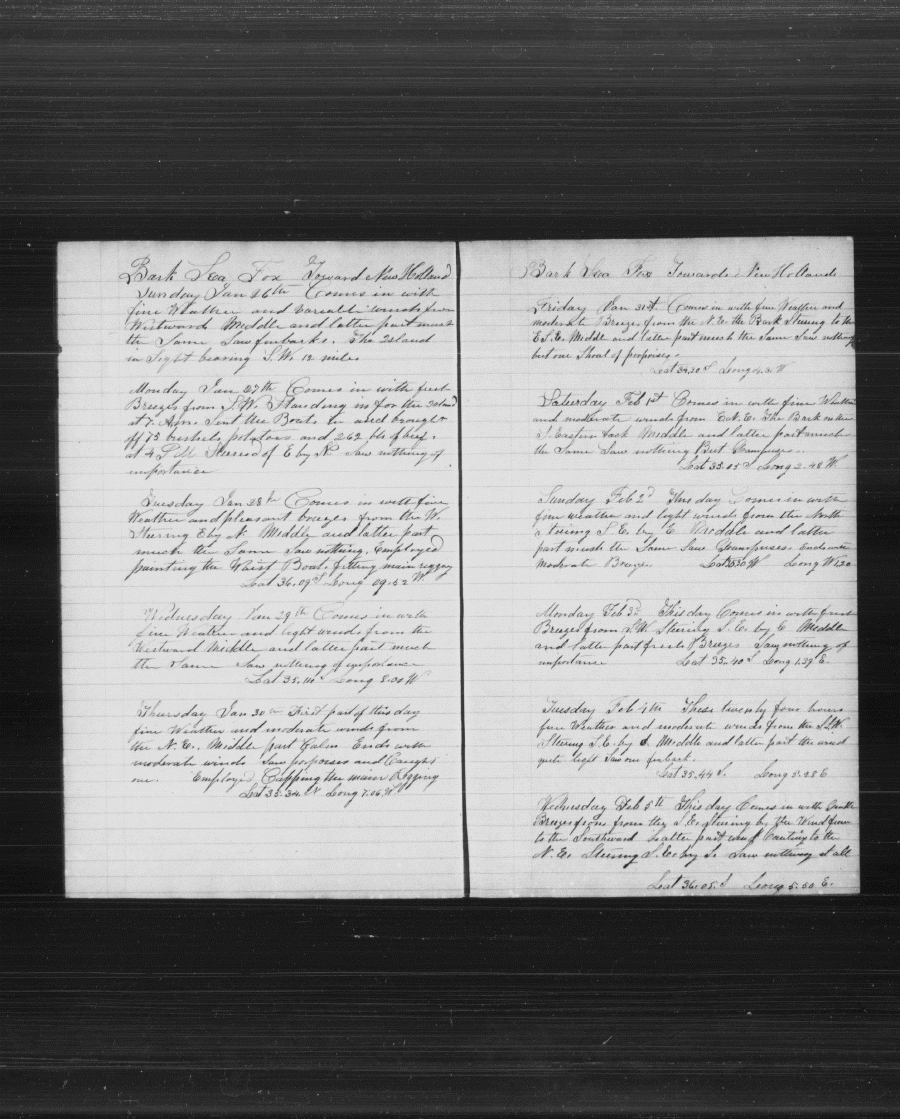 Bark Sea Fox Toward New Holland
Sunday Jan 26th Comes in with
fine Weather and Variable winds from
Westward Meddle and latter part much
the Same Saw finbacks. The Island
in Sight bearing S.W. 12 miles
Monday Jan 27th Comes in with fresh
Breezes from S.W. Standing in for the Island
at 7. Am. Sent the Boats in and brought
off 75 bushels potatoes and 262 lbs of beef.
at 4 P.M Steered of E by N. Saw nothing of
importance
Tuesday Jan 28th Comes in with fine
Weather and pleasant breezes from the W.
Steering E by N. Meddle and latter part
much the Same Saw nothing. Employed
painting the Waist Boat. fitting main rigging
Lat 36.09 S Long 09.52 W
Wednesday Jan 29th Comes in with
fine Weather and light winds from the
Westward Meddle and latter part much
the Same Saw nothing of importance
Lat 35. S Long 8.30 W
Thursday Jan 30th First part of this day
fine Weather and moderate winds from
the N.E. Meddle part Calm Ends with
moderate winds Saw porposses and Caught
one. Employed Capping the main Rigging
Lat 35.34 Long 7.06 W
Bark Sea Fox Towards New Holland
Friday Jan 31st Comes in with fine Weather and
moderate Breezes from the N.E. the Bark Steering to the
E.S.E. Meddle and latter part much the Same Saw nothing
but one Shoal of porpoises.
Lat 34.30 S Long 4.31 W
Saturday Feb 1st Comes in with fine Weather
and moderate winds from E.N.E. The Bark on the
S. Eastern tack Meddle and latter part much
the Same Saw nothing But Grampuses.
Lat 35.05 S Long 2.48 W
Sunday Feb 2d This day Comes in with
fine weather and light winds from the North
Steering S.E. by E Meddle and latter
part much the Same Saw Grampuses Ends with
moderate Breeze. Long W 1.20
Monday Feb 3d This day Comes in with fresh
Breezes from S.W. Steering S.E. by E Meddle
and latter part fresh Breezes Saw nothing of
importance Lat 35.40 S Long 1.39 E.
Tuesday Feb 4th These twenty four hours
fine Weather and moderate winds from the S.S.W.
Steering S.E. by Meddle and latter part the wind
quite light Saw one finback.
Lat 35.44 S. Long 3.28 E
Wednesday Feb 5th This day Comes in with
Breezes from the S.E. Steering by the Wind
to the Southward Latter part wind Canting to the
N.E. Steering S.E. by S. Saw nothing at all
Lat 36.05 S Long 5.50 E.